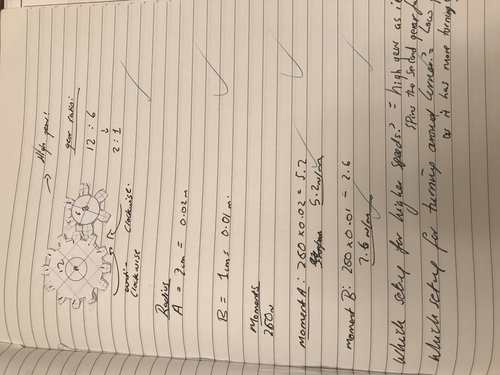 → High gear!
gear ratio:
12 : 6
2 : 1
12
A
6
B
anti-
clockwise
clockwise.
Radius
A = 2cm = 0.02m
B = 1cm = 0.01m.
Moments
260N
Moment A: 260 x 0.02 = 5.2
5.2N/m
Moment B: 260 x 0.01 = 2.6
2.6 N/m
Which setup for higher speeds? = high gear as i
spin the second gear fa
Which setup for turning around corners = Low
as it has more turning